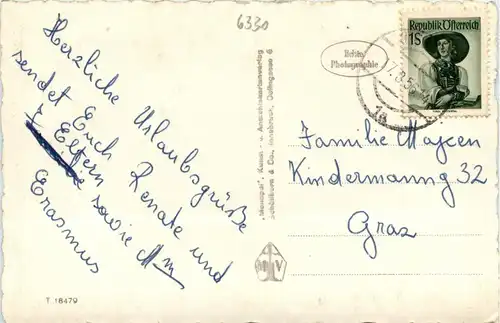 6330
Herzliche Urlaubsgrüße
sendet Euch Renate und
Eltern sowie
Erasmus
T 18479
"Monopol", Kunst- u. Ansichtskartenverlag
Schöllhorn & Co., Innsbruck,
Echte
Photographie
Republik Österreich
1S
1a
Familie Majcen
Kindermanng 32
Graz